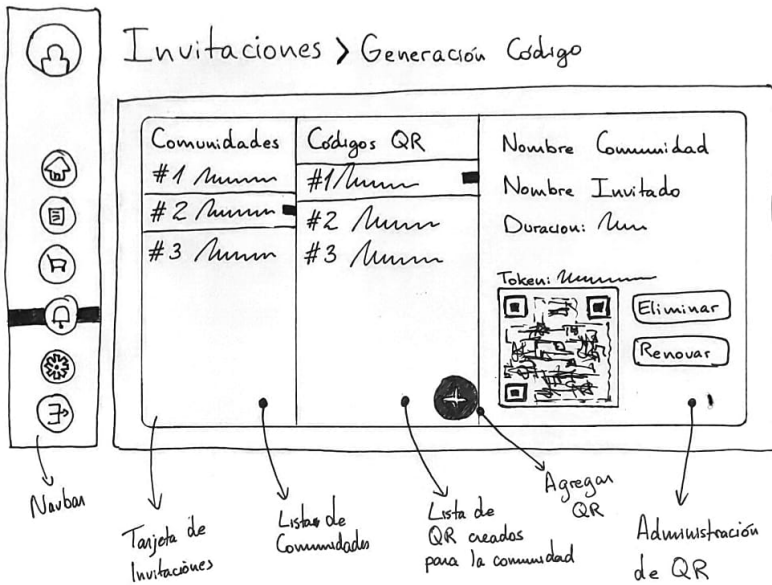 Invitaciones > Generación Código
Comunidades
#1
#2
#3
Códigos QR
#1
#2
#3
Nombre Comunidad
Nombre Invitado
Duracion:
Token:
Eliminar
Renovar
Navbar
Tarjeta de
Invitaciones
Listas de
Comunidades
Lista de
QR creados
para la comunidad
Agregar
QR
Administración
de QR